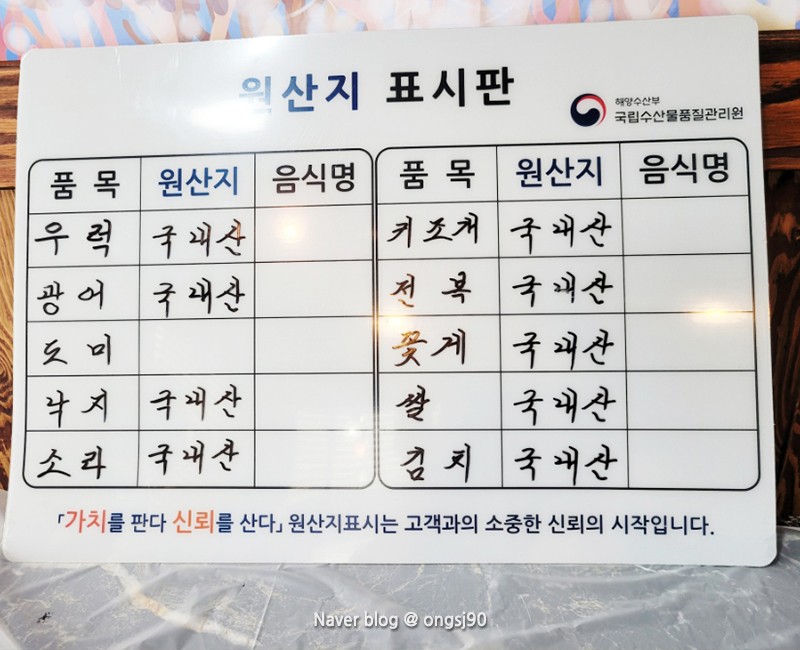 원산지 표시판
해양수산부
국립수산물품질관리원
품 목 원산지 음식명 품 목 원산지 음식명
우럭 국내산 키조개 국내산
광어 국내산 전복 국내산
도미 꽃게 국내산
낙지 국내산 쌀 국내산
소라 국내산 김치 국내산
「가치를 판다 신뢰를 산다」 원산지표시는 고객과의 소중한 신뢰의 시작입니다.
Naver blog @ ongsj90